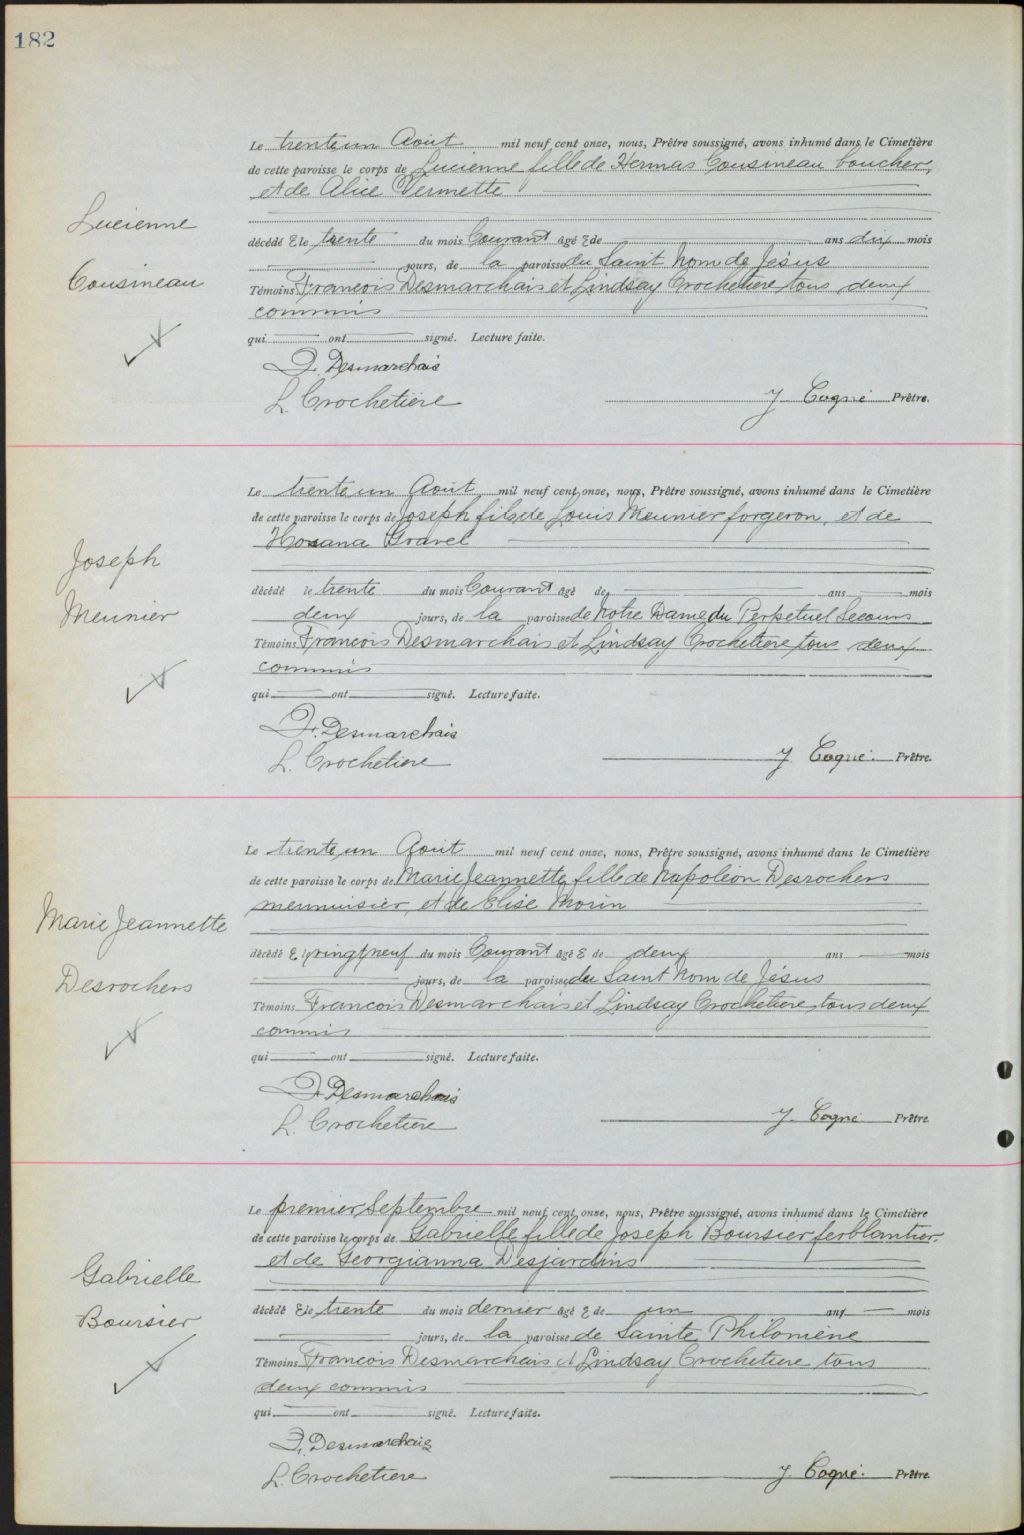 182
Le trente un Août mil neuf cent onze, nous, Prêtre soussigné, avons inhumé dans le Cimetière
de cette paroisse le corps de Lucienne fille de Hermas Cousineau boucher,
et de Alice Vermette
Lucienne
Cousineau
décédé e le trente du mois Courant âgé e de ans dix mois
jours, de la paroisse du Saint Nom de Jésus
Témoins Francois Desmarchais et Lindsay Crochetiere tous deux
commis
qui ont signé. Lecture faite.
F. Desmarchais
L. Crochetière
J. Cogné Prêtre.
Le trente un Août mil neuf cent onze, nous, Prêtre soussigné, avons inhumé dans le Cimetière
de cette paroisse le corps de Joseph fils de Louis Meunier forgeron, et de
Hosana Gravel
Joseph
Meunier
décédé le trente du mois Courant âgé de ans mois
deux jours, de la paroisse de Notre Dame du Perpetuel Secours
Témoins Francois Desmarchais et Lindsay Crochetiere tous deux
commis
qui ont signé. Lecture faite.
F. Desmarchais
L. Crochetiere
J. Cogné. Prêtre.
Le trente un Août mil neuf cent onze, nous, Prêtre soussigné, avons inhumé dans le Cimetière
de cette paroisse le corps de Marie Jeannette fille de Napoléon Desrochers
menuisier, et de Elise Morin
Marie Jeannette
Desrochers
décédé e le vingt neuf du mois Courant âgé e de deux ans mois
jours, de la paroisse du Saint Nom de Jésus
Témoins Francois Desmarchais et Lindsay Crochetiere, tous deux
commis
qui ont signé. Lecture faite.
F. Desmarchais
L. Crochetiere
J. Cogné Prêtre
Le premier Septembre mil neuf cent onze, nous, Prêtre soussigné, avons inhumé dans le Cimetière
de cette paroisse le corps de Gabrielle fille de Joseph Boursier ferblantier,
et de Georgianna Desjardins
Gabrielle
Boursier
décédé e le trente du mois dernier âgé e de un ans mois
jours, de la paroisse de Sainte Philomène
Témoins Francois Desmarchais et Lindsay Crochetiere tous
deux commis
qui ont signé. Lecture faite.
F. Desmarchais
L. Crochetiere
J. Cogné. Prêtre.